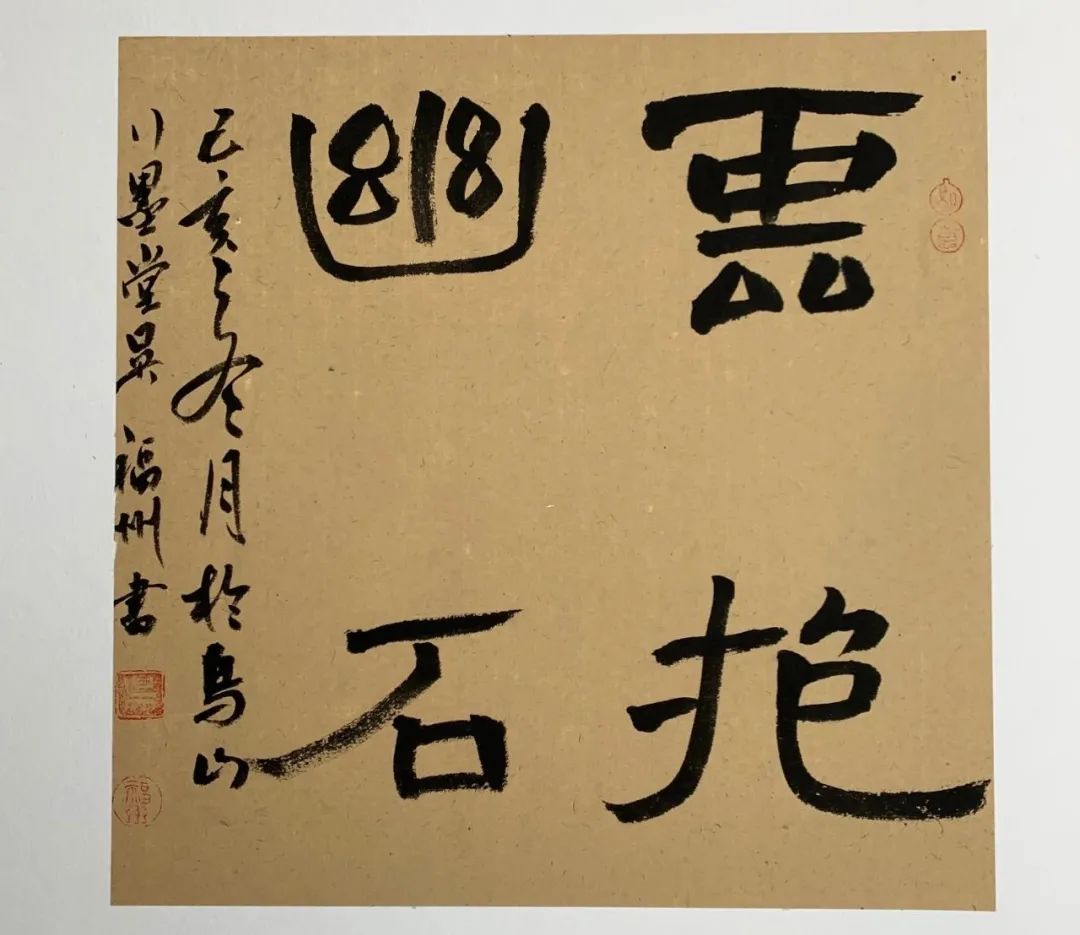 雲抱
幽石
己亥之冬月於烏山
墨堂吴福州書